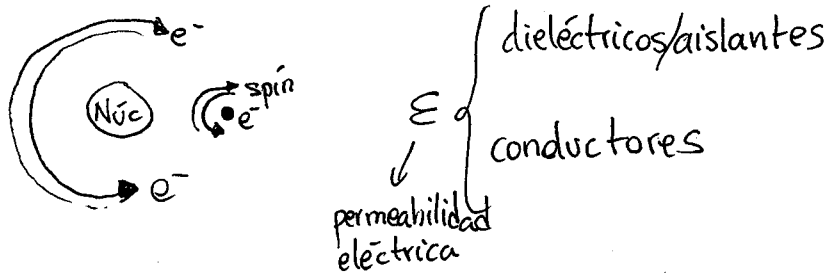 e⁻
Núc
spín
e⁻
e⁻
ε
dieléctricos/aislantes
conductores
permeabilidad
eléctrica